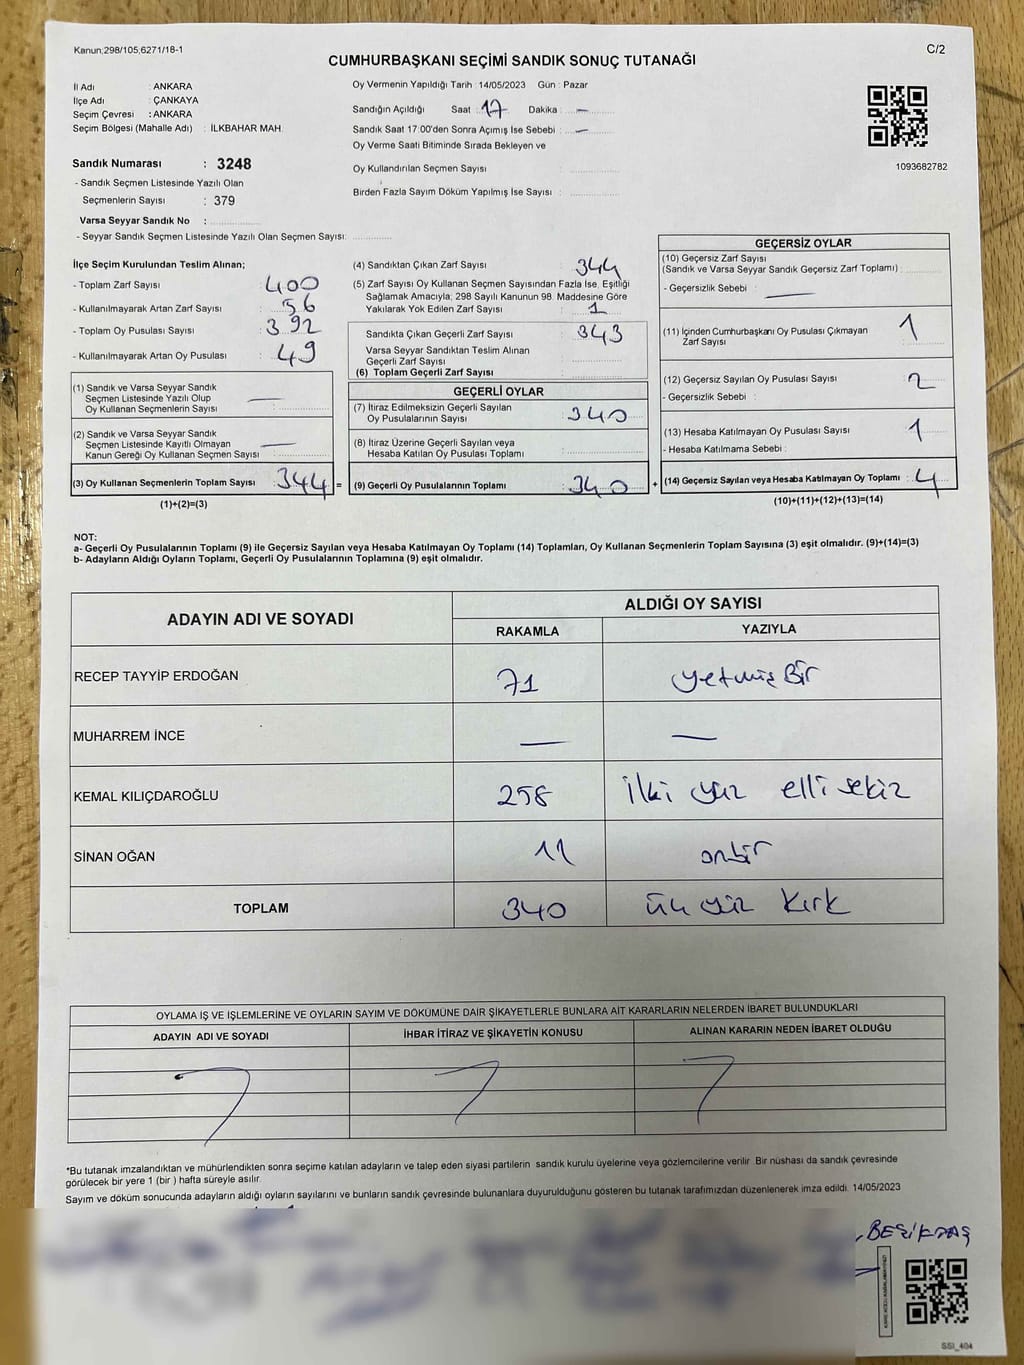 Kanun;298/105;6271/18-1
C/2
CUMHURBAŞKANI SEÇİMİ SANDIK SONUÇ TUTANAĞI
İl Adı : ANKARA
İlçe Adı : ÇANKAYA
Seçim Çevresi : ANKARA
Seçim Bölgesi (Mahalle Adı) : İLKBAHAR MAH.
Sandık Numarası : 3248
- Sandık Seçmen Listesinde Yazılı Olan
Seçmenlerin Sayısı : 379
Varsa Seyyar Sandık No :
- Seyyar Sandık Seçmen Listesinde Yazılı Olan Seçmen Sayısı:
Oy Vermenin Yapıldığı Tarih : 14/05/2023 Gün : Pazar
Sandığın Açıldığı Saat : 17 Dakika : —
Sandık Saat 17:00'den Sonra Açımış İse Sebebi : —
Oy Verme Saati Bitiminde Sırada Bekleyen ve
Oy Kullandırılan Seçmen Sayısı :
Birden Fazla Sayım Döküm Yapılmış İse Sayısı :
1093682782
İlçe Seçim Kurulundan Teslim Alınan;
- Toplam Zarf Sayısı : 400
- Kullanılmayarak Artan Zarf Sayısı : 56
- Toplam Oy Pusulası Sayısı : 392
- Kullanılmayarak Artan Oy Pusulası : 49
(1) Sandık ve Varsa Seyyar Sandık
Seçmen Listesinde Yazılı Olup
Oy Kullanan Seçmenlerin Sayısı : —
(2) Sandık ve Varsa Seyyar Sandık
Seçmen Listesinde Kayıtlı Olmayan
Kanun Gereği Oy Kullanan Seçmen Sayısı : —
(3) Oy Kullanan Seçmenlerin Toplam Sayısı : 344 =
(1)+(2)=(3)
(4) Sandıktan Çıkan Zarf Sayısı : 344
(5) Zarf Sayısı Oy Kullanan Seçmen Sayısından Fazla İse, Eşitliği
Sağlamak Amacıyla; 298 Sayılı Kanunun 98. Maddesine Göre
Yakılarak Yok Edilen Zarf Sayısı : 1
Sandıkta Çıkan Geçerli Zarf Sayısı : 343
Varsa Seyyar Sandıktan Teslim Alınan
Geçerli Zarf Sayısı
(6) Toplam Geçerli Zarf Sayısı :
GEÇERLİ OYLAR
(7) İtiraz Edilmeksizin Geçerli Sayılan
Oy Pusulalarının Sayısı : 340
(8) İtiraz Üzerine Geçerli Sayılan veya
Hesaba Katılan Oy Pusulası Toplamı :
(9) Geçerli Oy Pusulalarının Toplamı : 340 +
GEÇERSİZ OYLAR
(10) Geçersiz Zarf Sayısı
(Sandık ve Varsa Seyyar Sandık Geçersiz Zarf Toplamı) :
- Geçersizlik Sebebi : —
(11) İçinden Cumhurbaşkanı Oy Pusulası Çıkmayan
Zarf Sayısı : 1
(12) Geçersiz Sayılan Oy Pusulası Sayısı : 2
- Geçersizlik Sebebi :
(13) Hesaba Katılmayan Oy Pusulası Sayısı : 1
- Hesaba Katılmama Sebebi :
(14) Geçersiz Sayılan veya Hesaba Katılmayan Oy Toplamı : 4
(10)+(11)+(12)+(13)=(14)
NOT:
a- Geçerli Oy Pusulalarının Toplamı (9) ile Geçersiz Sayılan veya Hesaba Katılmayan Oy Toplamı (14) Toplamları, Oy Kullanan Seçmenlerin Toplam Sayısına (3) eşit olmalıdır. (9)+(14)=(3)
b- Adayların Aldığı Oyların Toplamı, Geçerli Oy Pusulalarının Toplamına (9) eşit olmalıdır.
ADAYIN ADI VE SOYADI
ALDIĞI OY SAYISI
RAKAMLA YAZIYLA
RECEP TAYYİP ERDOĞAN 71 yetmiş Bir
MUHARREM İNCE — —
KEMAL KILIÇDAROĞLU 258 iki yüz elli sekiz
SİNAN OĞAN 11 onbir
TOPLAM 340 üç yüz kırk
OYLAMA İŞ VE İŞLEMLERİNE VE OYLARIN SAYIM VE DÖKÜMÜNE DAİR ŞİKAYETLERLE BUNLARA AİT KARARLARIN NELERDEN İBARET BULUNDUKLARI
ADAYIN ADI VE SOYADI İHBAR İTİRAZ VE ŞİKAYETİN KONUSU ALINAN KARARIN NEDEN İBARET OLDUĞU
*Bu tutanak imzalandıktan ve mühürlendikten sonra seçime katılan adayların ve talep eden siyasi partilerin sandık kurulu üyelerine veya gözlemcilerine verilir. Bir nüshası da sandık çevresinde
görülecek bir yere 1 (bir ) hafta süreyle asılır.
Sayım ve döküm sonucunda adayların aldığı oyların sayılarını ve bunların sandık çevresinde bulunanlara duyurulduğunu gösteren bu tutanak tarafımızdan düzenlenerek imza edildi. 14/05/2023
BEŞİKTAŞ
SSI_404